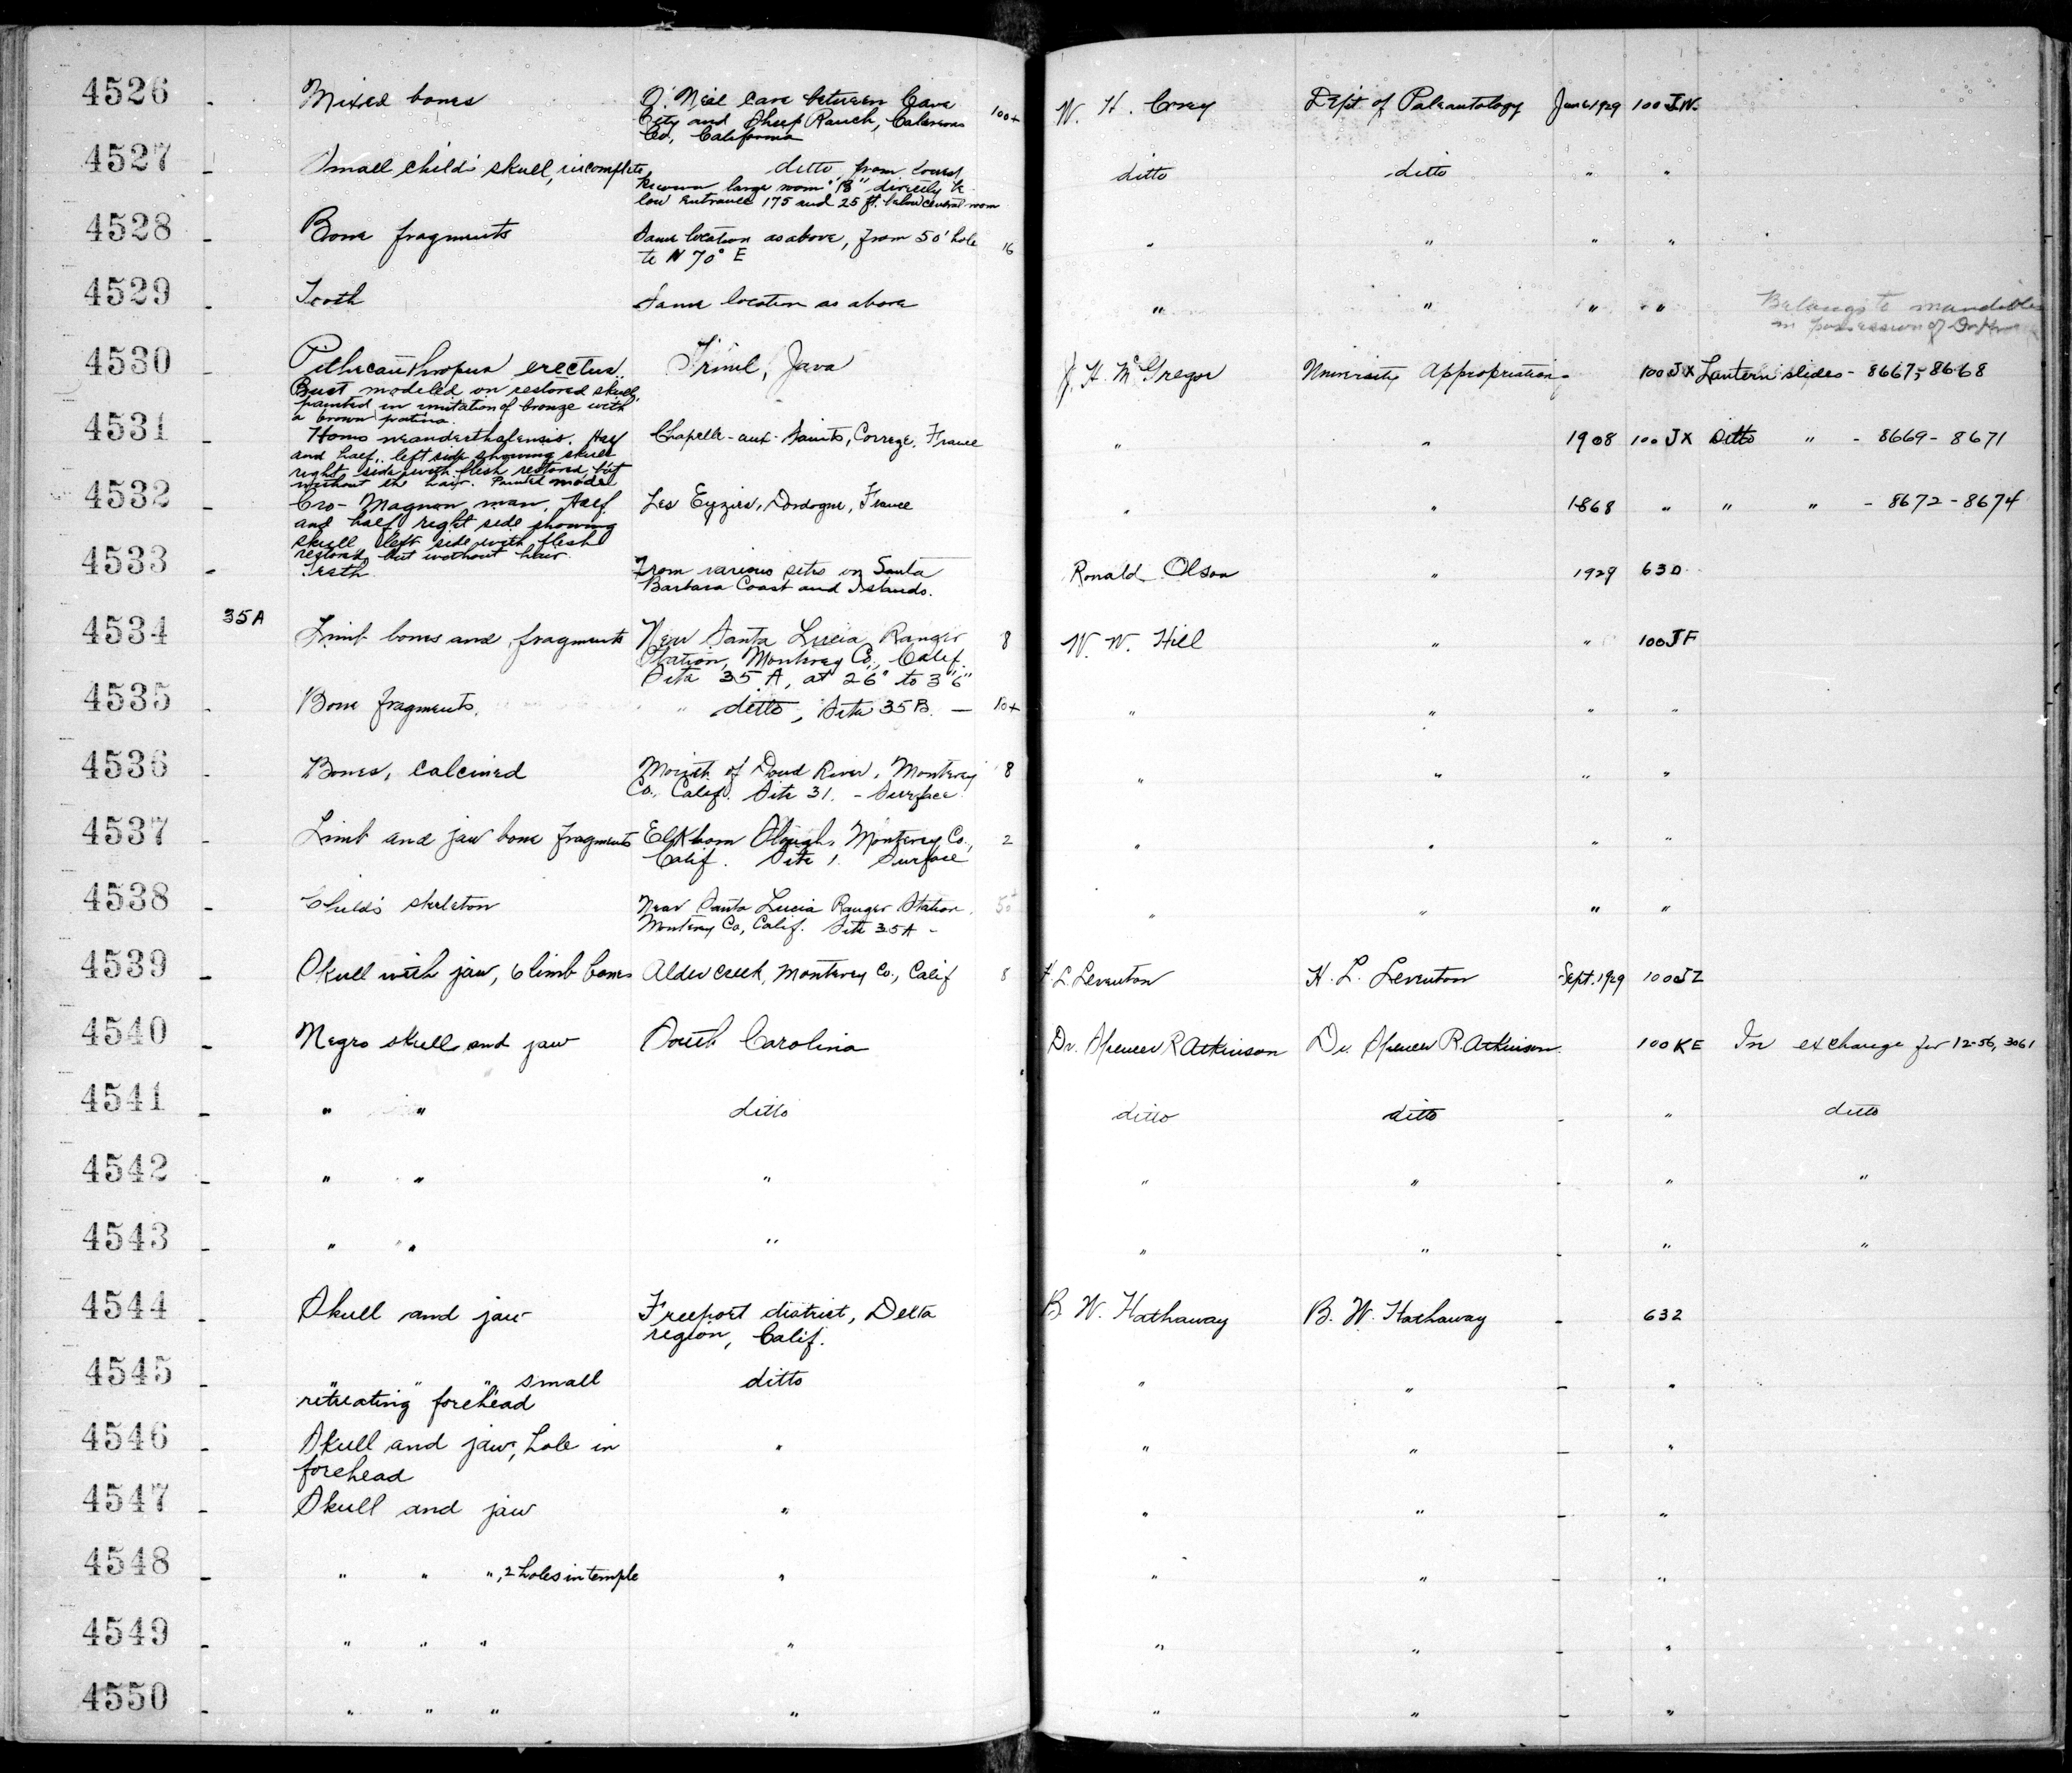 4526 - Mixed bones O. Neil Cave between Cave 100+ W. H. Corey Dept of Paleontology June 1929 100 JW.
City and Sheep Ranch, Calaveras
Co, California
4527 - Small child's skull, incomplete ditto from lowest ditto ditto " "
known large room "18" directly be
low entrance 175 and 25 ft. below central room
4528 - Bone fragments Same location as above, from 50' hole 16 " " " "
to N 70° E
4529 - Tooth Same location as above " " " " Belongs to mandible
in possession of
4530 - Pithecanthropus erectus. Trinil, Java J. H. McGregor University Appropriation - 100 JX Lantern slides - 8667, 8668
Bust modeled on restored skull,
painted in imitation of bronze with
a brown patina.
4531 - Homo neanderthalensis. Half Chapelle-aux-Saints, Correze, France " " 1908 100 JX Ditto " - 8669 - 8671
and half, left side showing skull
right side with flesh restored but
without the hair. Painted model
4532 - Cro-Magnon man. Half Les Eyzies, Dordogne, France " " 1868 " " " - 8672 - 8674
and half, right side showing
skull left side with flesh
restored but without hair.
4533 - Teeth From various sites on Santa Ronald Olson " 1929 630
Barbara Coast and Islands.
4534 - 35A Limb bones and fragments Near Santa Lucia Ranger 8 W. W. Hill " " 100JF
Station, Monterey Co., Calif.
Site 35 A, at 2'6" to 3'6"
4535 - Bone fragments. " ditto, Site 35B. — 10+ " " " "
4536 - Bones, calcined Mouth of Doud River, Monterey 8 " " " "
Co., Calif. Site 31. - Surface
4537 - Limb and jaw bone fragments Elkhorn Slough, Monterey Co., 2 " " " "
Calif. Site 1. Surface
4538 - Child's skeleton Near Santa Lucia Ranger Station. 50+ " " " "
Monterey Co, Calif. Site 35A -
4539 - Skull with jaw, 6 limb bones Alder Creek, Monterey Co., Calif 8 H. L. Leventon H. L. Leventon Sept. 1929 100JZ
4540 - Negro skull and jaw South Carolina Dr. Spencer R Atkinson Dr. Spencer R. Atkinson 100 KE In exchange for 12-56, 3061
4541 - " " ditto ditto ditto - " ditto
4542 - " " " " " - " "
4543 - " " " " " - " "
4544 - Skull and jaw Freeport district, Delta B. W. Hathaway B. W. Hathaway - 632
region, Calif.
4545 - " " " small ditto " " - "
retreating forehead
4546 - Skull and jaw, hole in " " " - "
forehead
4547 - Skull and jaw " " " - "
4548 - " " ", 2 holes in temple " " " - "
4549 - " " " " " " - "
4550 - " " " " " " - "